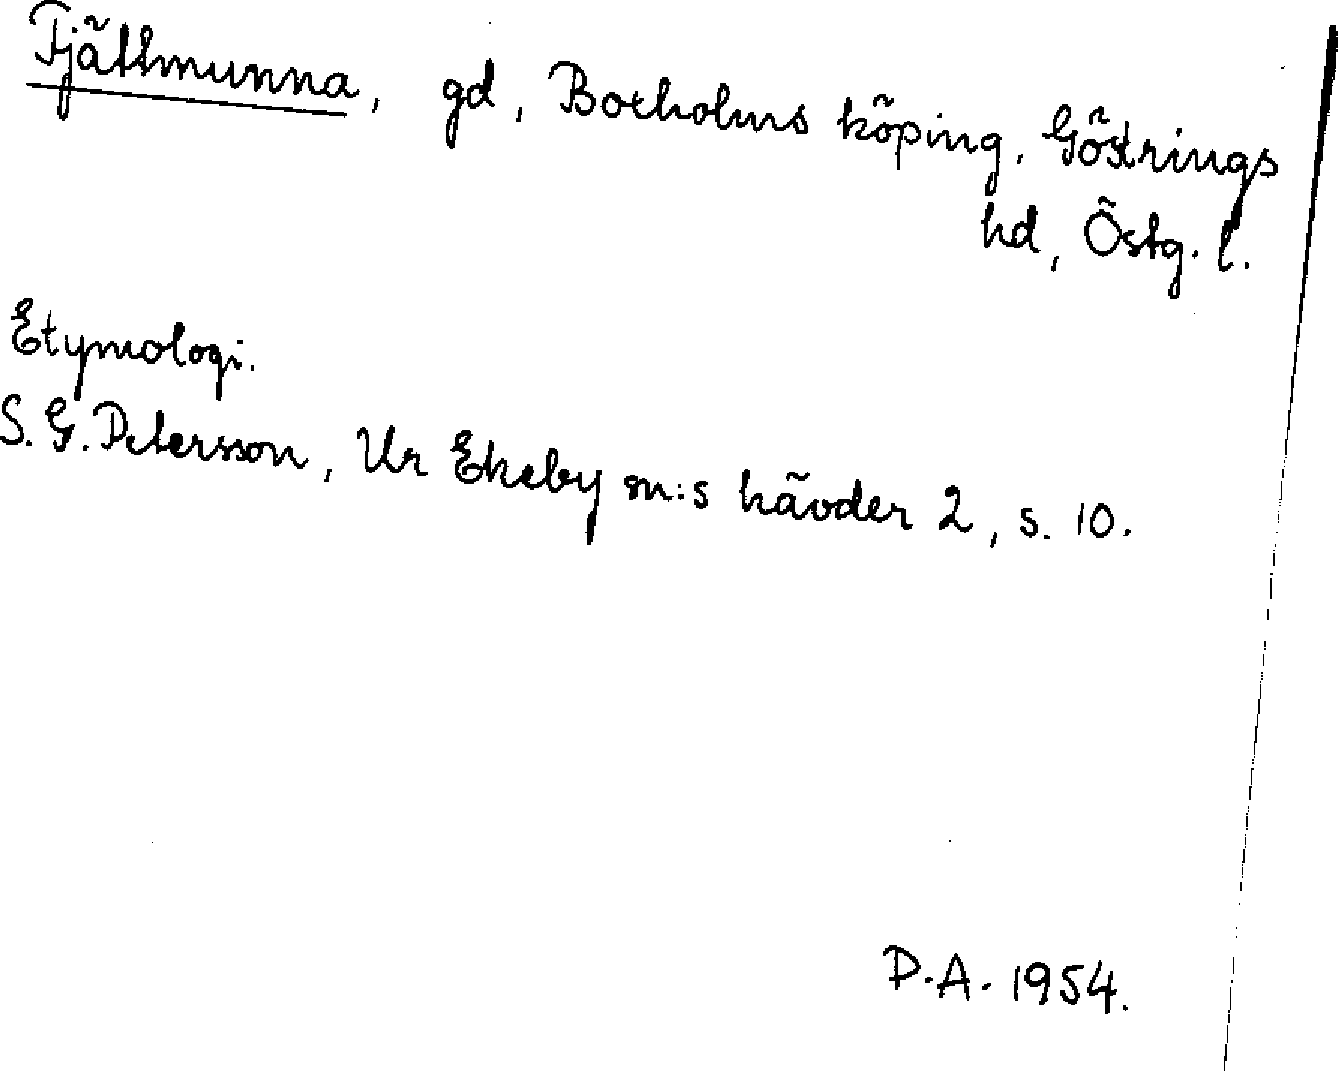 Fjättmunna, gd, Boxholms köping, Göstrings
hd, Östg. l.
Etymologi.
S. G. Petersson, Ur Ekeby sn:s hävder 2, s. 10.
P.A. 1954.